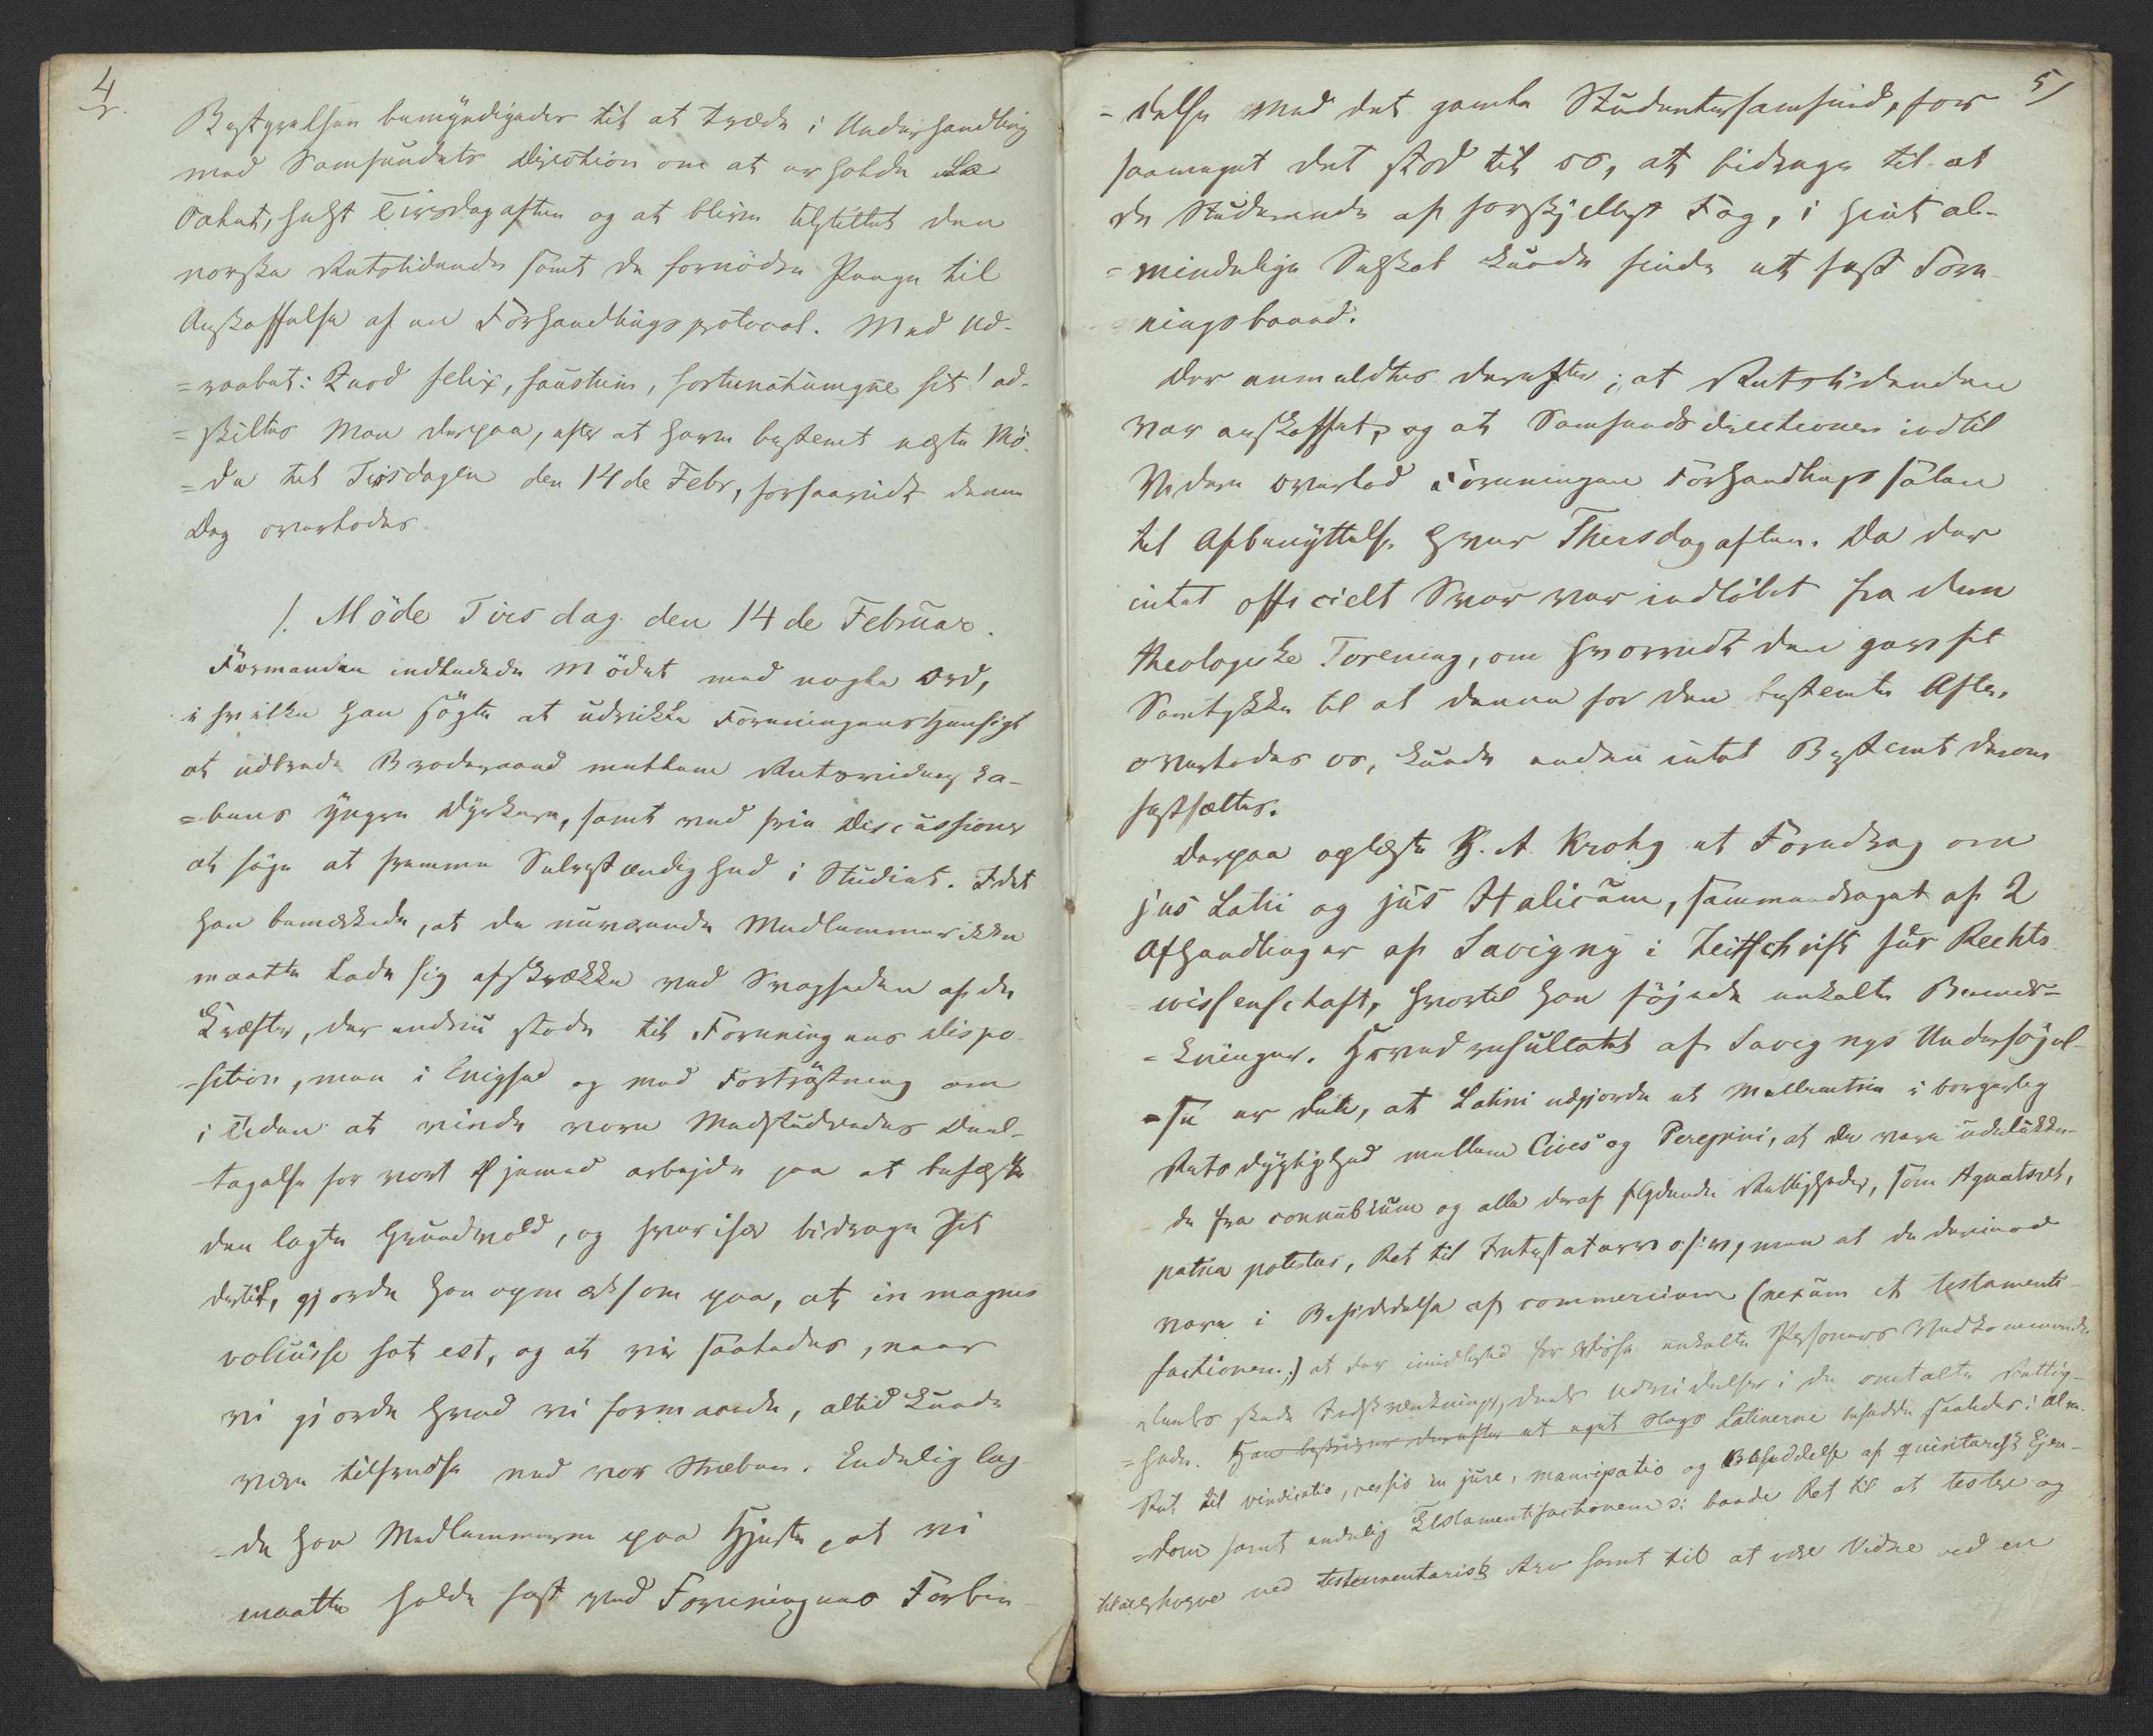 4
Bestyrelsen bemyndigedes til at træde i Underhandling
med Samfundets Direction om at erholde Lo-
calet, helst Tirsdag aften og at blive tilstillet den
norske Retstidende samt de fornödne Penge til
Anskaffelse af en Forhandlingsprotocol. Med Ud-
=raabet: Quod felix, faustum, fortunatumque sit! ad-
=skiltes Man derpaa, efter at have bestemt næste Mö-
=de til Tirsdagen den 14de Febr, forsaavidt denne
Dag overlodes.
1. Möde Tirsdag den 14de Februar.
Formanden indledede Mödet med nogle Ord,
i hvilke han sögte at udvikle Foreningens Hensigt
at udbrede Broderaand mellem Retsvidenska-
=bens yngre Dyrkere, samt ved frie Discussioner
at söge at fremme Selvstændighed i Studiet. Idet
han bemærkede, at de nuværende Medlemmer ikke
maatte lade sig afskrække ved Svagheden af de
Kræfter, der endnu stode til Foreningens Dispo-
-sition, men i Enighed og med Fortröstning om
i Tiden at vinde vore Medstuderendes Deel-
-tagelse for vort Öjemed arbejde paa at befæste
den lagte Grundvold, og hver især bidrage Sit
dertil, gjorde han opmærksom paa, at in magnis
voluisse sat est, og at vi saaledes, naar
vi gjorde hvad vi formaaede, altid kunde
være tilfredse med vor Stræben. Endelig lag-
=de han Medlemmerne paa Hjerte, at vi
maatte holde fast ved Foreningens Forbin-
5/
=delse med det gamle Studentersamfund, for
saameget det stod til os, at bidrage til at
de Studerende af forskjelligt Fag, i hint al-
=mindelige Selskab kunde finde et fast Fore-
ningsbaand.
Der anmeldtes derefter, at Retstidenden
var anskaffet, og at Samfundsdirectionen indtil
Videre overlod Foreningen Forhandlingssalen
til Afbenyttelse hver Thirsdag aften. Da der
intet officielt Svar var indlöbet fra den
theologiske Forening, om hvorvidt den gav sit
Samtykke til at denne for den bestemte Aften
overlodes os, kunde endnu intet Bestemt derom
fastsættes.
Derpaa oplæste H. A Krohg et Foredrag om
jus Latii og jus Italicum, sammendraget af 2
Afhandlinger af Savigny i Zeitschrift für Rechts
wissenschaft, hvortil han föjede enkelte Bemær-
=kninger. Hovedresultatet af Savignys Undersögel-
-se er dette, at Latini udgjorde et Mellemtrin i borgerlig
Retsdygtighed mellem Cives og Peregrini, at de vare udelukke-
de fra connubium og alle deraf flydende Rettigheder, som Agnatret,
patria potestas, Ret til Intestatarv o: s: v, men at de derimod
vare i Besiddelse af commercium (nexum et testamenti-
factionem;) at der imidlertid for visse enkelte Personers Vedkommende
deels skede Indskrænkninger, deels Udvidelser i de omtalte Rettig-
=heder. Han bestriver derefter at eget Slags Latinerne besadde saaledes i Alm.
Ret til vindicatio, cessio in jure, mancipatio og Besiddelse af quiritarisk Ejen-
=dom samt endelig Testamentifactionem o: baade Ret til at teste og
til at erhverve ved testamentarisk Arv samt til at være Vidne ved en